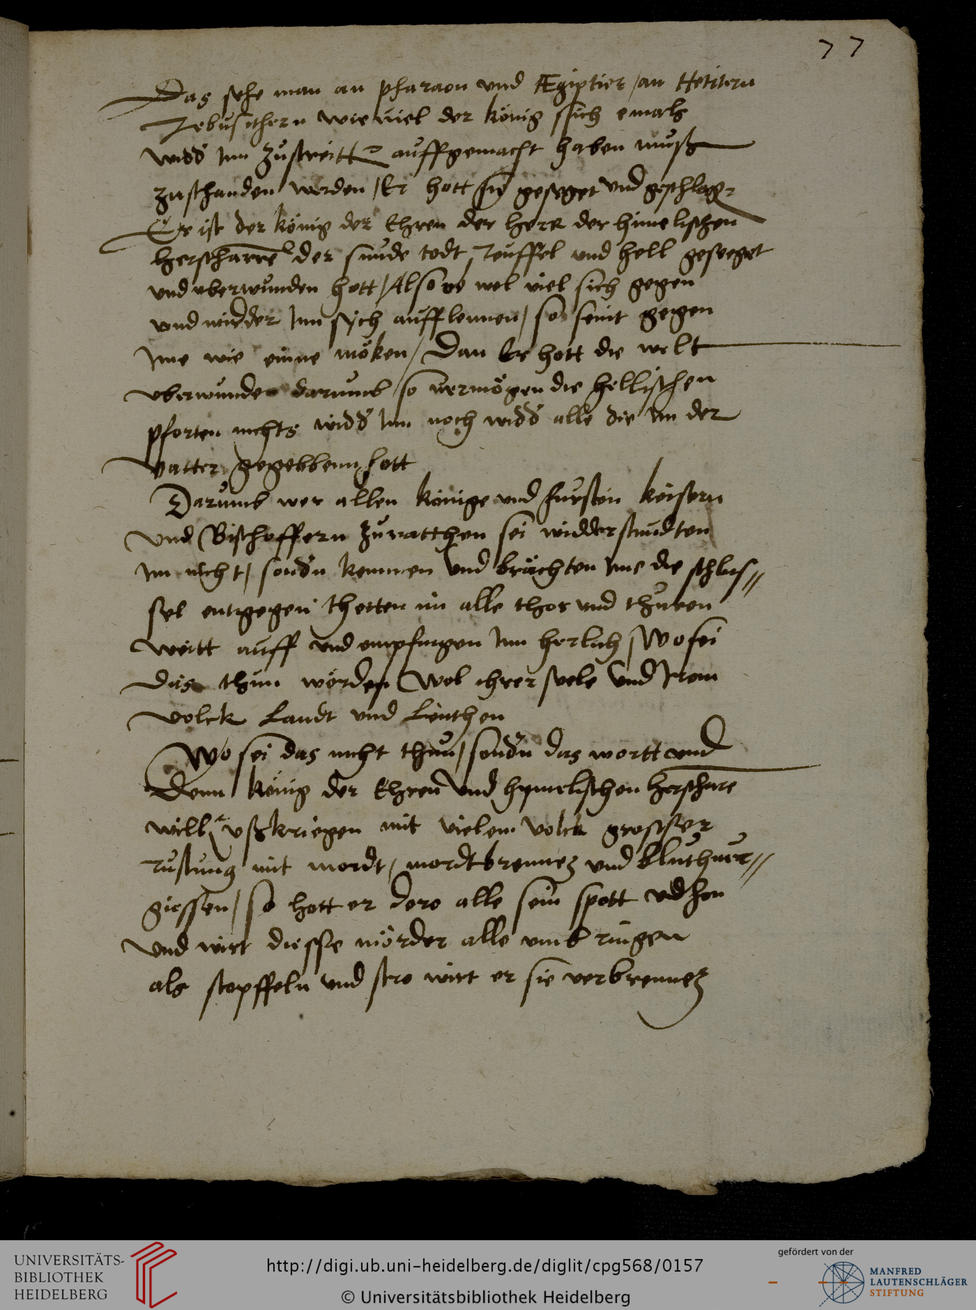 77
Das sehe man an pharaon und Ægiptier / an Hetitern
Jebusithern wie viel der könig sich emals
widd Inn zustreitt auffgemacht haben muß
zuschanden werden / Er hott sie gesieget und geschlag
Er ist der könig der Ehren der herr der himelischen
herscharren der sunde todt Teuffel und hell gesieget
und uberwunden hott / Also ob wol viel sich gegen
und widder Inn sych aufflennen / so seint gegen
Ime wie eine möken / Dan Er hott die welt
uberwunden darumb so vermögen die hellischen
pforten nichts widd Inn noch widd alle die Im der
Vatter gegebbenn hott
Darumb wer allen könige und fursten keisern
und Bischoffern zu ratthen sei widderstundten
Im nicht / sondn kemmen und brächten Ime die schlus=
sel entgegen thetten im alle thor und thuren
weitt auff und empfingen Inn herlich / Wo sei
das thun worden Wol ihrer sele und Irem
volck Landt und Leuthen
Wo sei das nicht thun / sondn das wortt und
Denn könig der Ehren und hymelischen herschare
will ußkriegen mit vielem volck grosser
rustung mit mordt / mordtbrennen und bluthver=
giessen / so hott er dero alle sein spott und hon
und wirt diesse mörder alle umbringen
als stopffeln und stro wirt er sie verbrennen
UNIVERSITÄTS-
BIBLIOTHEK
HEIDELBERG
http://digi.ub.uni-heidelberg.de/diglit/cpg568/0157
© Universitätsbibliothek Heidelberg
gefördert von der
MANFRED
LAUTENSCHLÄGER
STIFTUNG